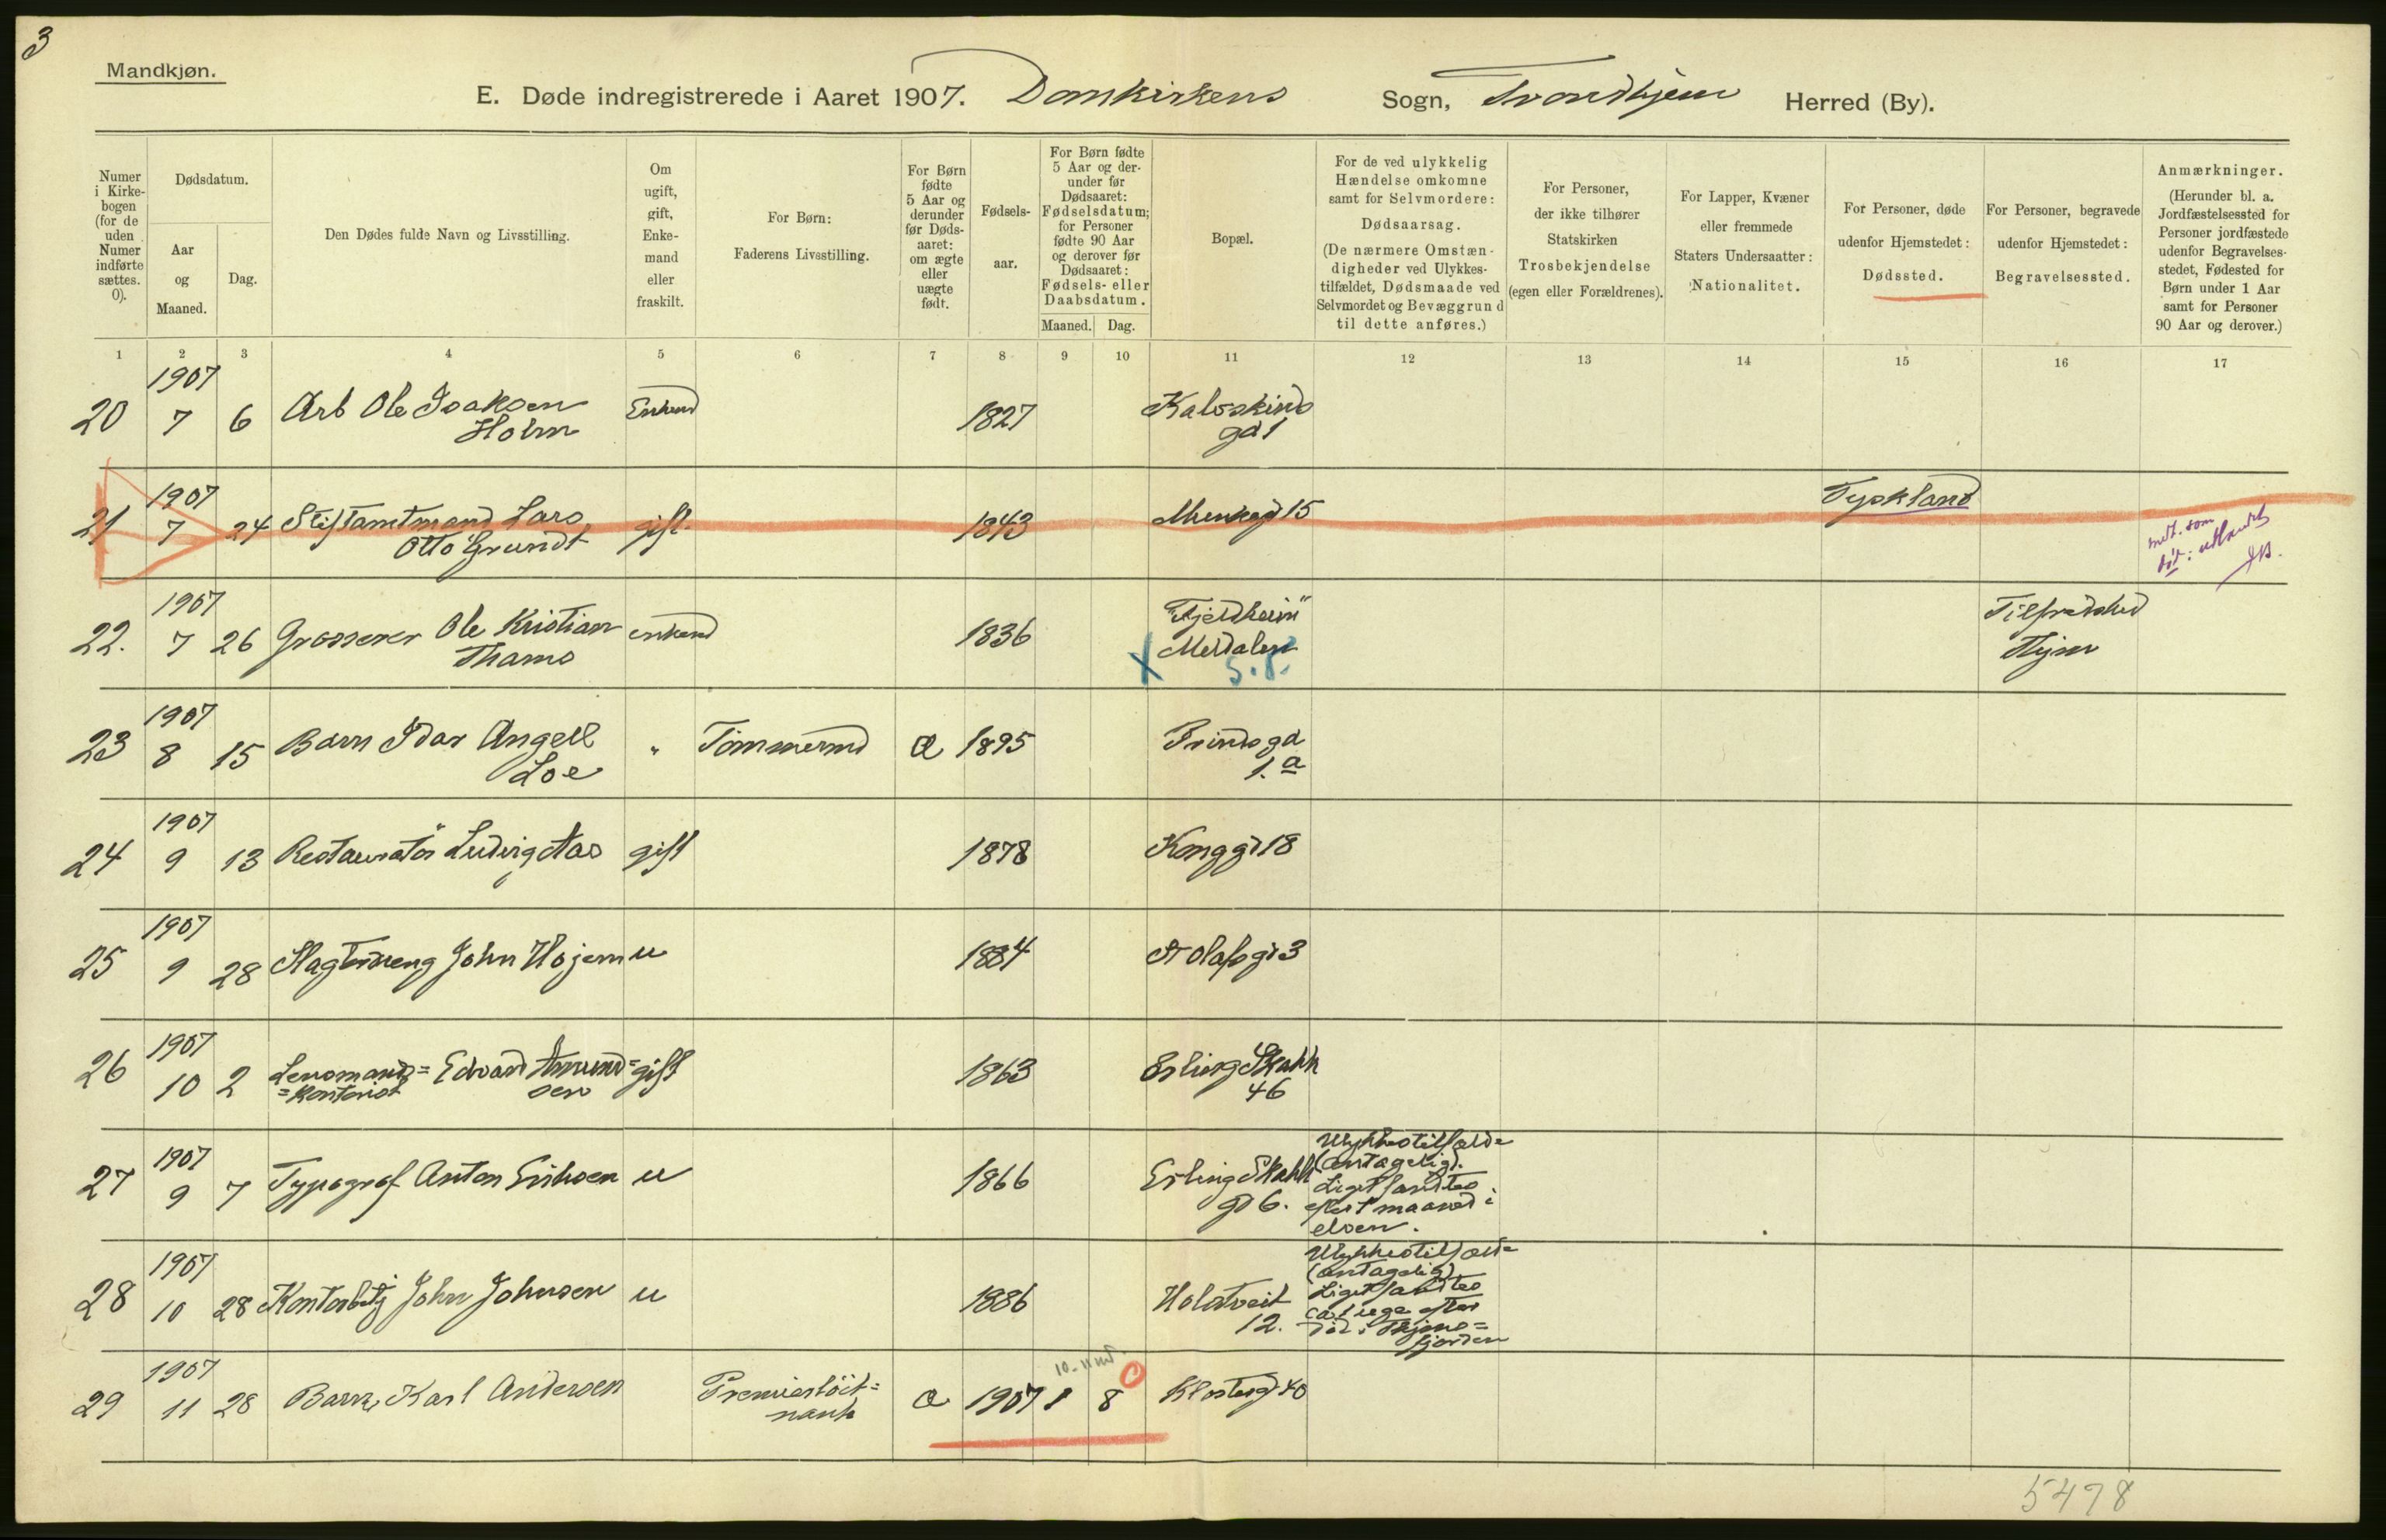 3
Mandkjøn.
E. Døde indregistrerede i Aaret 1907. Domkirkens Sogn, Trondhjem Herred (By).
Numer i Kirkebogen (for de uden Numer indførte sættes. 0).
Dødsdatum.
Aar og Maaned.
Dag.
Den Dødes fulde Navn og Livsstilling.
Om ugift, gift, Enkemand eller fraskilt.
For Børn:
Faderens Livsstilling.
For Børn fødte 5 Aar og derunder før Dødsaaret: om ægte eller uægte født.
Fødselsaar.
For Børn fødte 5 Aar og derunder før Dødsaaret: Fødselsdatum; for Personer fødte 90 Aar og derover før Dødsaaret: Fødsels- eller Daabsdatum.
Maaned. Dag.
Bopæl.
For de ved ulykkelig Hændelse omkomne samt for Selvmordere:
Dødsaarsag.
(De nærmere Omstændigheder ved Ulykkestilfældet, Dødsmaade ved Selvmordet og Bevæggrund til dette anføres.)
For Personer, der ikke tilhører Statskirken
Trosbekjendelse
(egen eller Forældrenes).
For Lapper, Kvæner eller fremmede Staters Undersaatter:
Nationalitet.
For Personer, døde udenfor Hjemstedet:
Dødssted.
For Personer, begravede udenfor Hjemstedet:
Begravelsessted.
Anmærkninger.
(Herunder bl. a. Jordfæstelsessted for Personer jordfæstede udenfor Begravelsesstedet, Fødested for Børn under 1 Aar samt for Personer 90 Aar og derover.)
1 2 3 4 5 6 7 8 9 10 11 12 13 14 15 16 17
1907
20 7 6 Arb Ole Isaksen Enkemd 1827 Kalvskinds
Holm gd 1
1907 Tyskland
21 7 24 Stiftamtmand Lars gift 1843 Munkegd 15
Otto Grundt
medt. som
død i utlandet
1907
22. 7 26 Grosserer Ole Kristian enkemd 1836 "Fjeldheim"
Thams Meldalen
5.8.
1907
23 8 15 Barn Idar Angell " Tømmermd Æ 1895 Prinds gd
Loe 1.a
1907
24 9 13 Restauratør Ludvig Aas gift 1878 Kong gd 18
1907
25 9 28 Slagtersveng John Højem u 1884 St Olafs gd 3
1907
26 10 2 Lensmands= Edvard Amund= gift 1863 Erling Skakk
=kontorist sen 46
1907
27 9 7 Typograf Anton Eriksen u 1866 Erling Skakk
gd 6.
Ulykkestilfæld=
(antagelig).
Liget fandtes
efter 1 maaned i
elven.
1907
28 10 28 Kontorbetj John Johnsen u 1886 Holstveit
12.
Ulykkestilfæld=
(antagelig)
Liget fandtes
ca 1 uge efter
død i Thjems=
fjorden
1907 10. mnd.
29 11 28 Barn, Karl Andersen Premierløit= Æ 1907 1 8 Klostergd 40
nant
5478